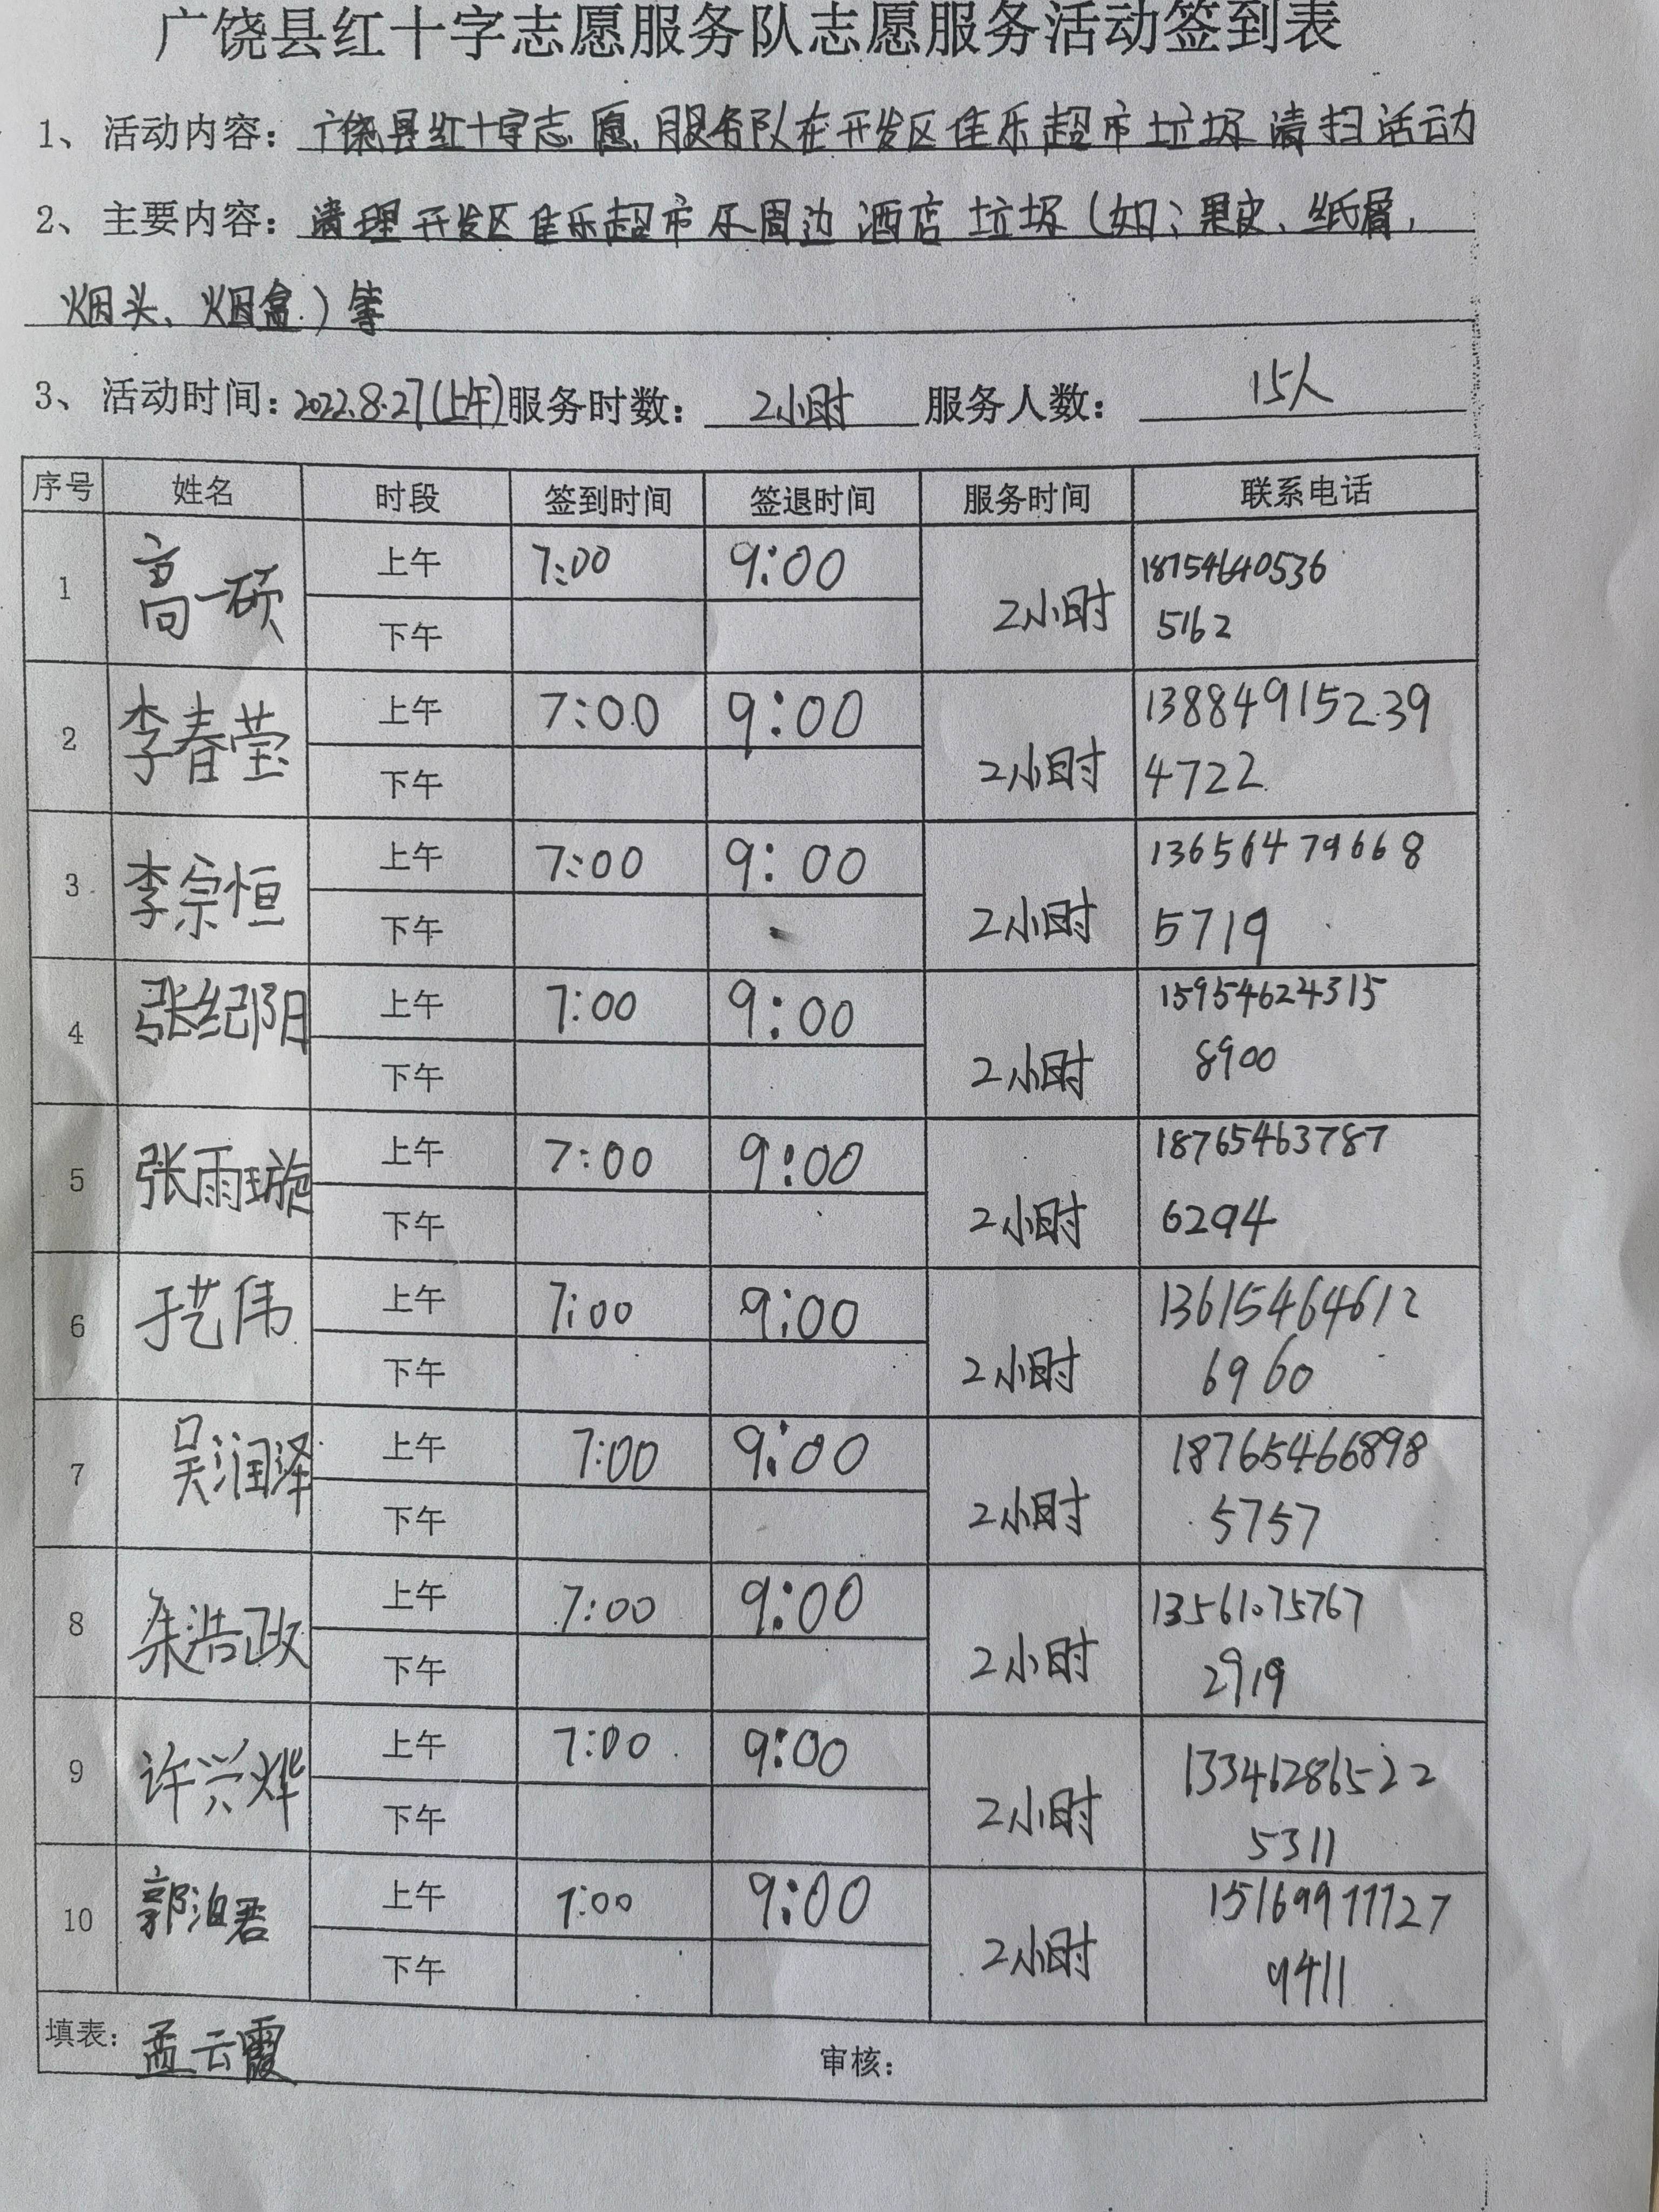 广饶县红十字志愿服务队志愿服务活动签到表
1、活动内容：广饶县红十字志愿服务队在开发区佳乐超市垃圾清扫活动
2、主要内容：清理开发区佳乐超市及周边酒店垃圾（如：果皮、纸屑，
烟头、烟盒）等
3、活动时间：2022.8.27(上午) 服务时数：2小时 服务人数：15人
序号 姓名 时段 签到时间 签退时间 服务时间 联系电话
1 高一硕 上午 7:00 9:00 2小时 18754640536
下午 5162
2 李春莹 上午 7:00 9:00 2小时 13884915239
下午 4722
3 李宗恒 上午 7:00 9:00 2小时 13656479668
下午 5719
4 张纪阳 上午 7:00 9:00 2小时 15954624315
下午 8900
5 张雨璇 上午 7:00 9:00 2小时 18765463787
下午 6294
6 于艺伟 上午 7:00 9:00 2小时 13615464612
下午 6960
7 吴润泽 上午 7:00 9:00 2小时 18765466898
下午 5757
8 朱浩政 上午 7:00 9:00 2小时 13561075767
下午 2919
9 许兴烨 上午 7:00 9:00 2小时 13346286522
下午 5311
10 郭洎君 上午 7:00 9:00 2小时
下午 9411
填表：孟云霞 审核：